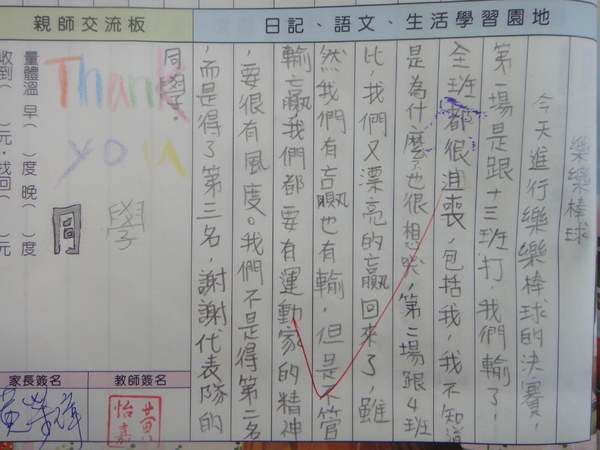 日記、語文、生活學習園地
樂樂棒球
今天進行樂樂棒球的決賽,
第一場是跟十三班打,我們輸了,
全班都很沮喪,包括我,我不知道
是為什麼?也很想哭,第二場跟4班
比,我們又漂亮的贏回來了,雖
然我們有贏也有輸,但是不管
輸贏我們都要有運動家的精神
,要很有風度。我們不是得第二名
,而是得了第三名,謝謝代表隊的
同學。
親師交流板
Thank
you
同學
量體溫 早( )度 晚( )度
收到( )元‧找回( )元
教師簽名
黃怡嘉
家長簽名